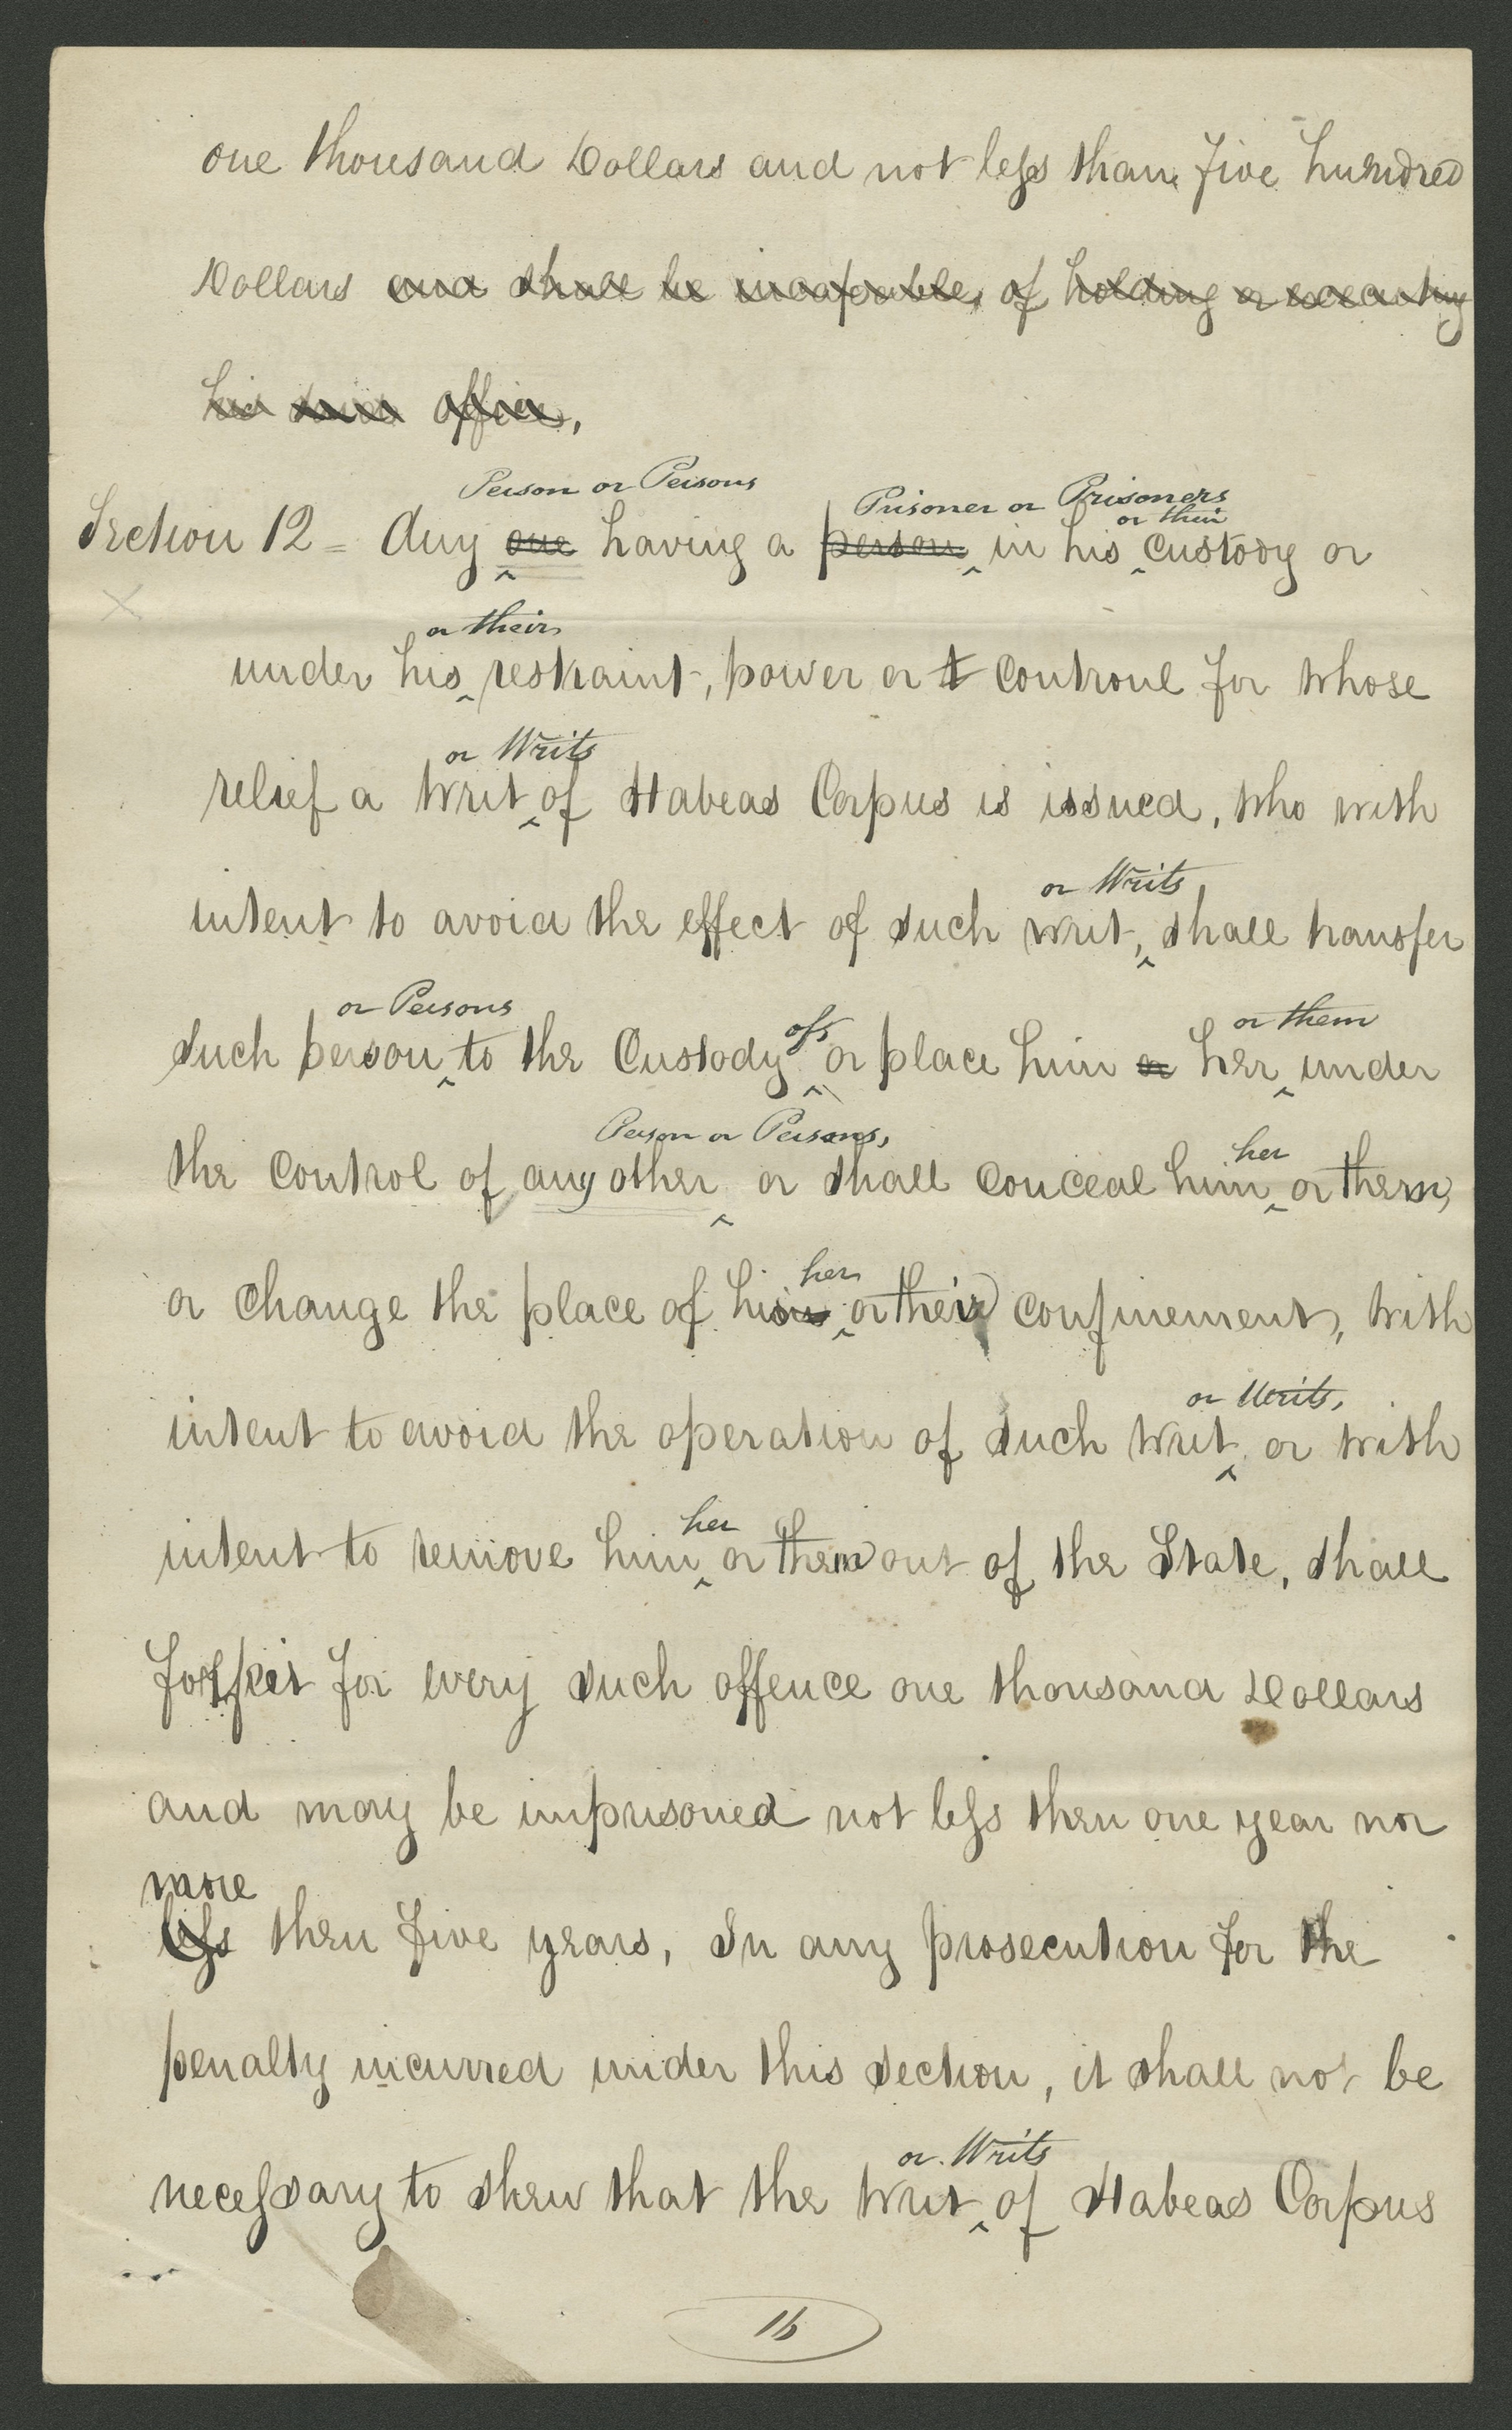 one thousand Dollars and not less than five hundred
Dollars and shall be incapable, of holding or executing
his said office,
Person or Persons Prisoner or Prisoners
or their
Section 12 = Any one having a person in his custody or
or their
under his restraint, power or t controul for whose
or Writs
relief a Writ of Habeas Corpus is issued, who with
or Writs,
intent to avoid the effect of such writ, shall transfer
or Persons of, or them
such person to the Custody or place him or her under
Person or Persons, her
the Control of any other or shall conceal him or them,
her
or change the place of his or their confinement, with
or Writs,
intent to avoid the operation of such Writ, or with
her
intent to remove him or them out of the State, shall
forfeit for every such offence one thousand Dollars
and may be imprisoned not less then one year nor
more
less then five years, In any prosecution for the
penalty incurred under this section, it shall not be
or Writs
necessary to shew that the Writ of Habeas Corpus
16